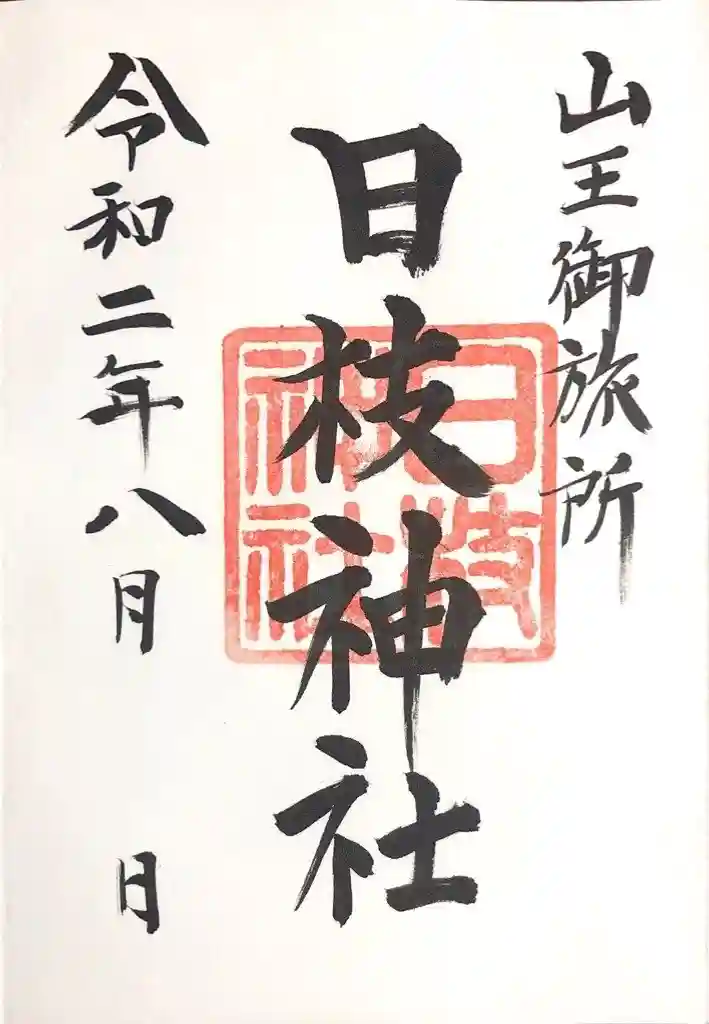 山王御旅所
日枝神社
日枝神社
令和二年八月　日